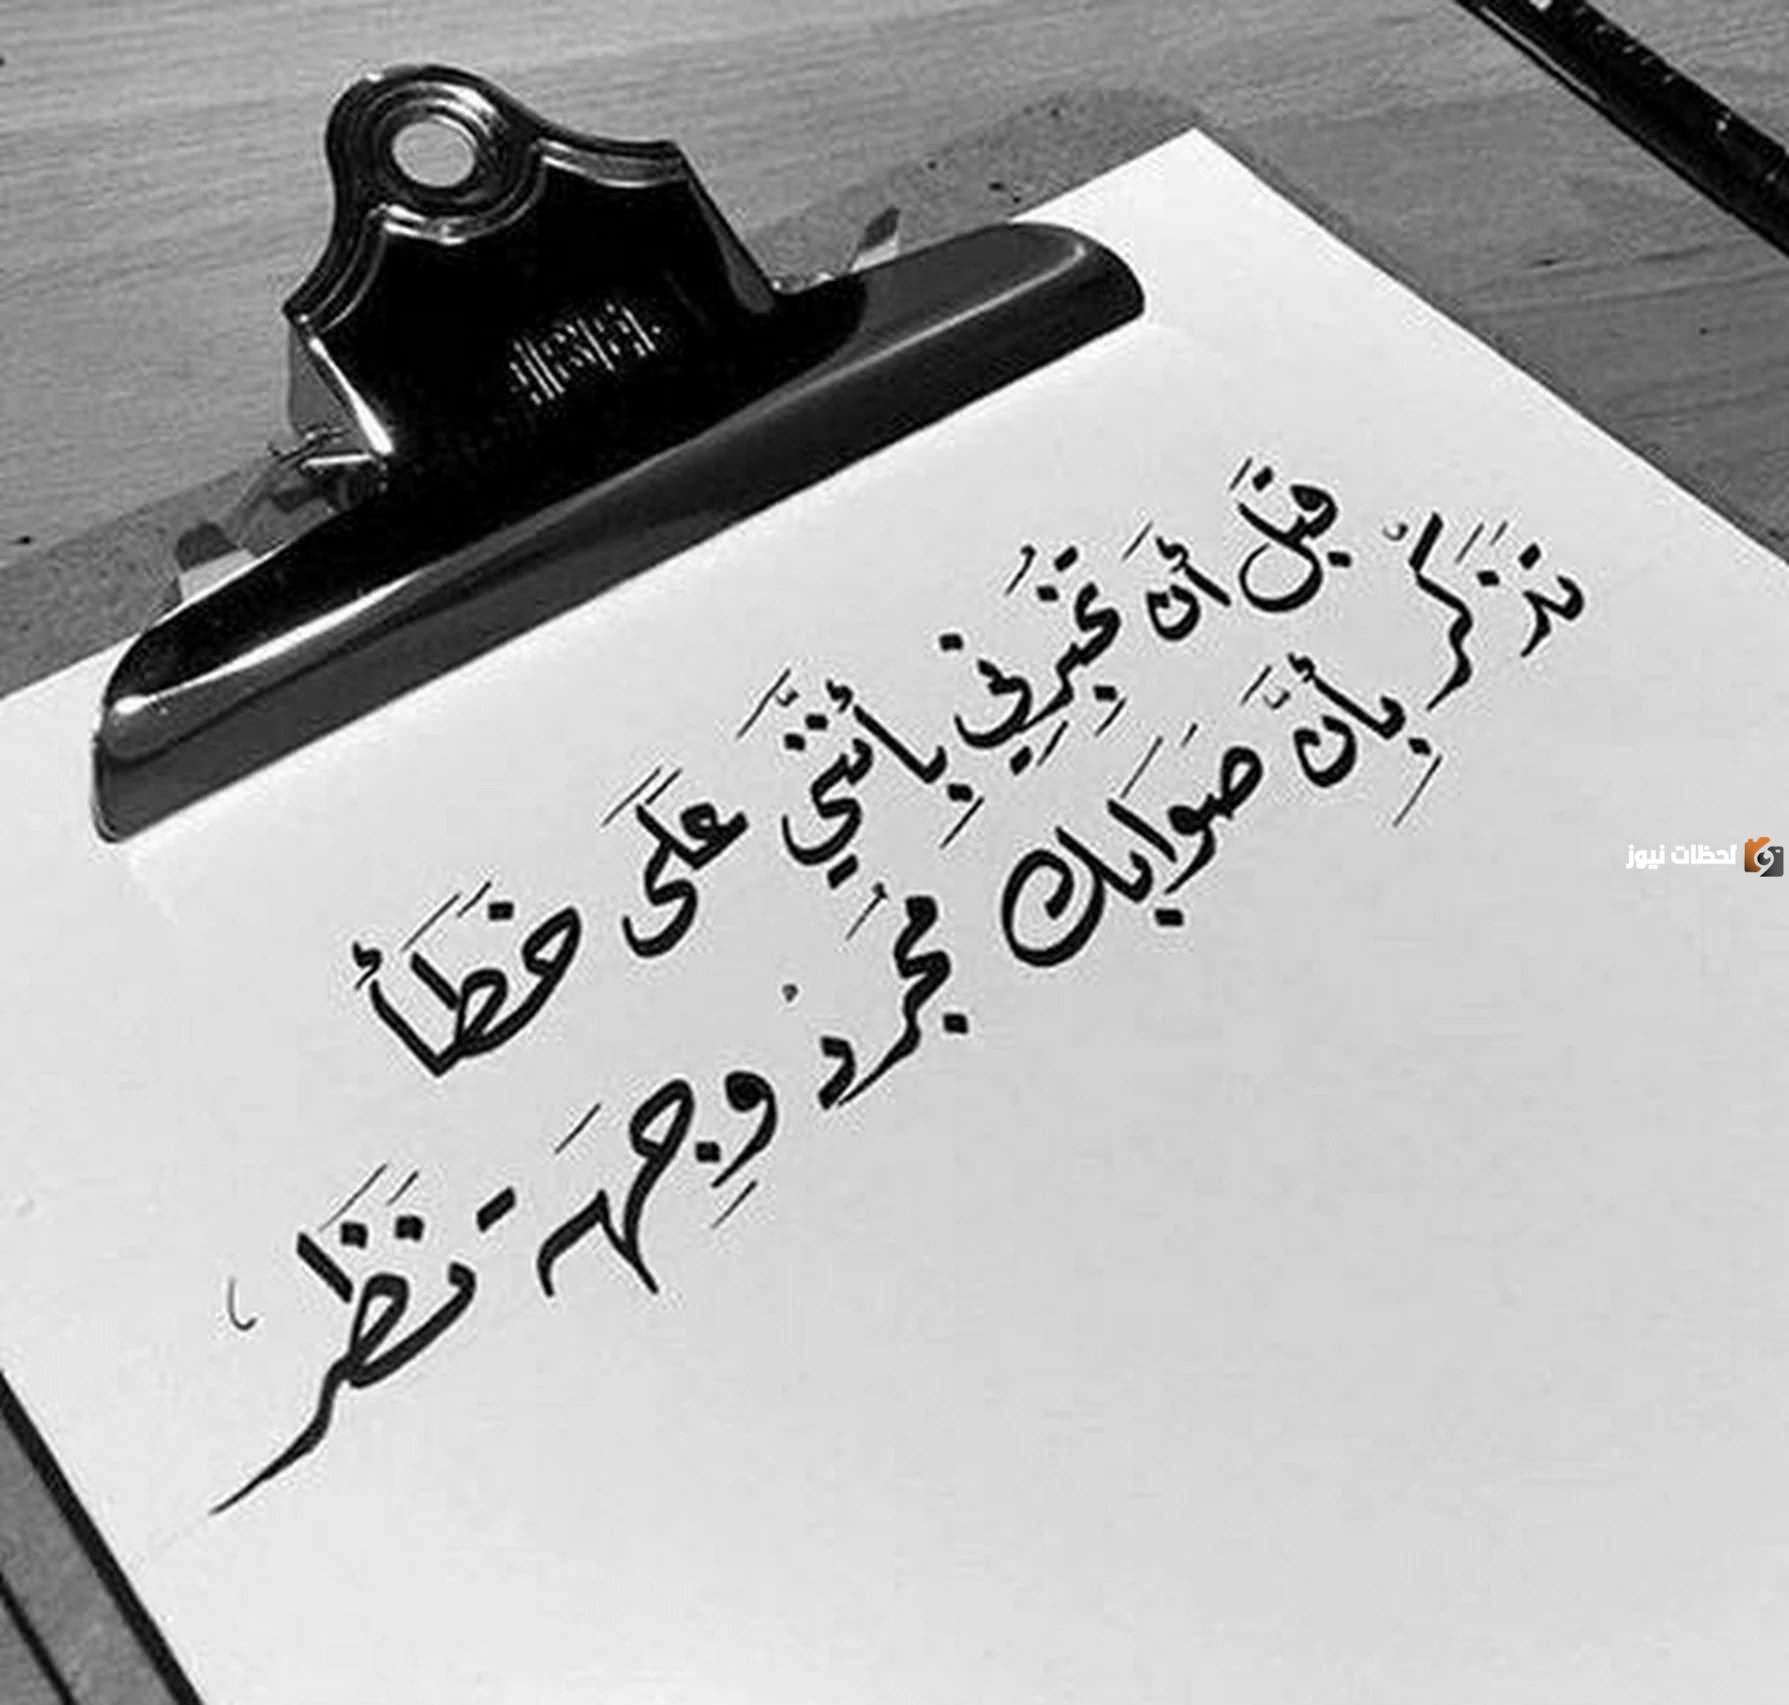 قَبْلَ أَنْ تُخْبِرَنِي بِأَنَّنِي عَلَى خَطَأ
تَذَكَّرْ بِأَنَّ صَوَابَكَ مُجَرَّدُ وِجْهَة نَظَر
لحظات نيوز